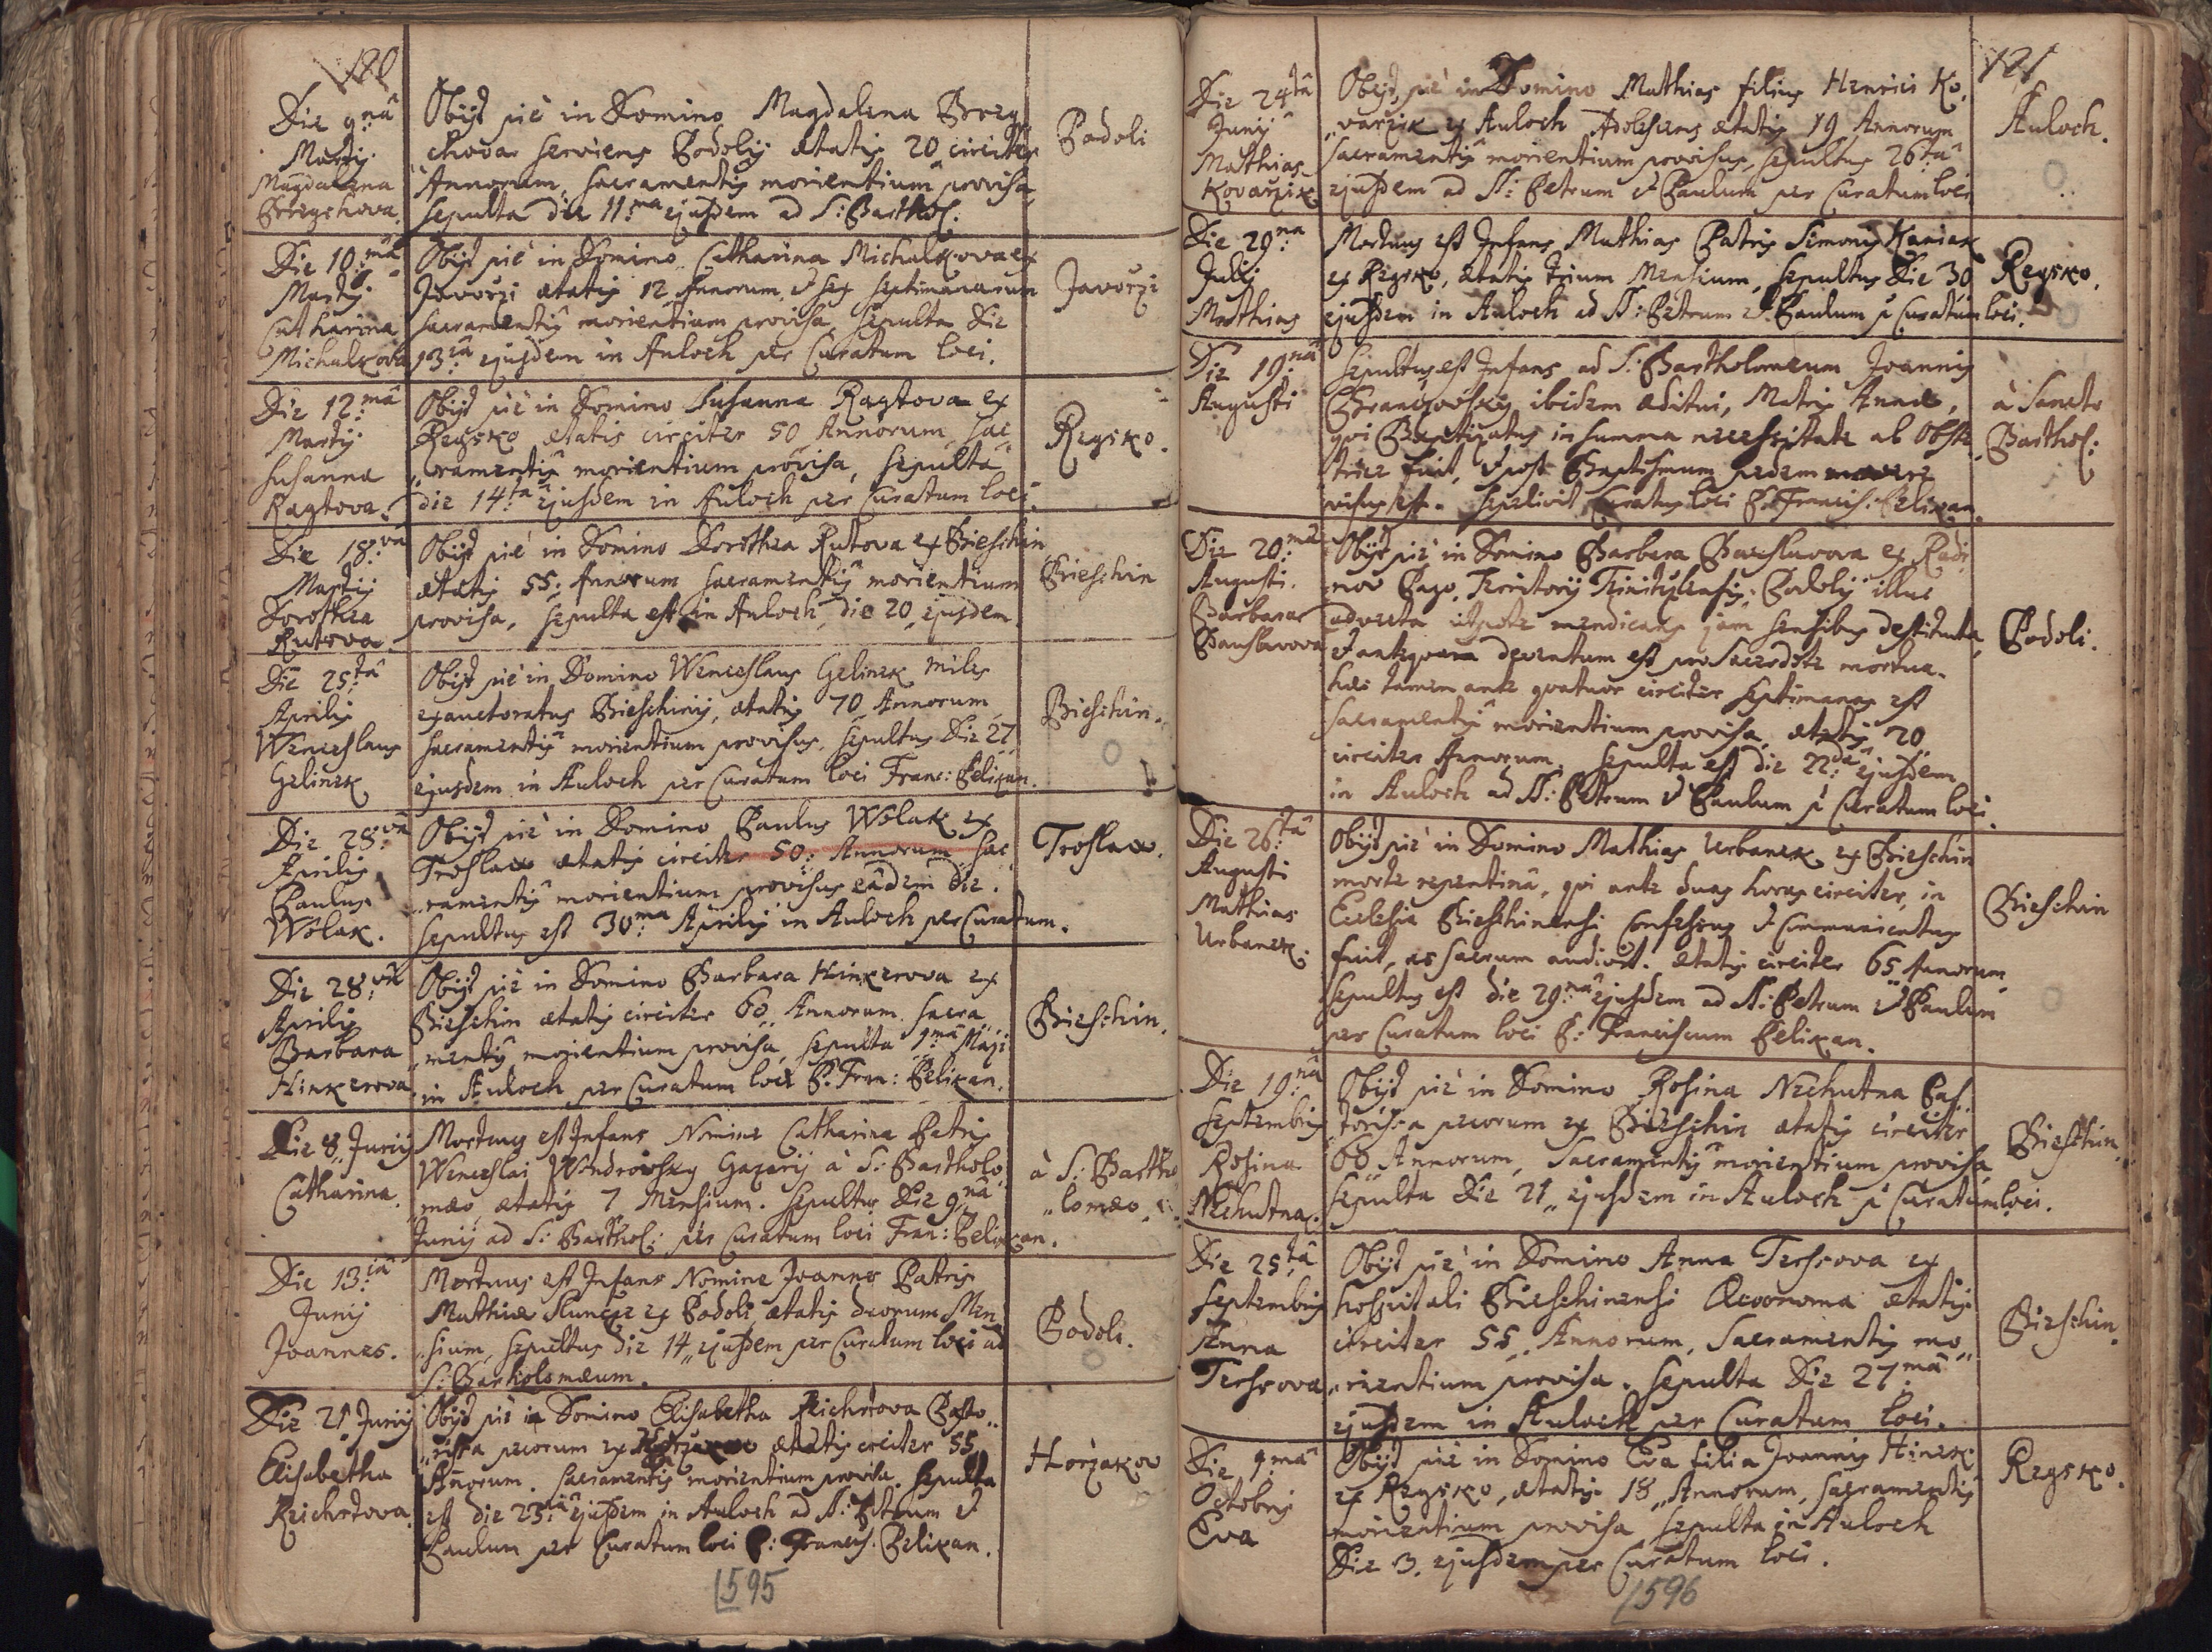 120
Die 9:nâ
Martij
Magdalena
Brzeychova.
Obijt piè in Domino Magdalena Brzey,
chova serviens Podolij ætatis 20 circiter
Annorum, Sacramentis morientium provisa,
sepulta die 11:ma ejusdem ad S: Barthol.
Podoli
Die 10:mâ
Martij
Catharina
Michalkova
Obijt piè in Domino Catharina Michalkova ex
Javorzi ætatis 12 Annorum, et sex septimanarum
sacramentis morientium provisa, sepulta Die
13:iâ ejusdem in Auloch per Curatum loci.
Javorzi
Die 12:mâ
Martij
Susanna
Raytova.
Obijt piè in Domino Susanna Raytova ex
Regsko ætatis circiter 50 Annorum, sac
„ramentis morientium provisa, sepulta
die 14:ta ejusdem in Auloch per Curatum loci.
Regsko.
Die 18:vâ
Martij
Dorothea
Rutova.
Obijt piè in Domino Dorothea Rutova ex Brieschin
ætatis 55: Annorum sacramentis morientium
provisa, sepulta est in Auloch, die 20 ejusdem.
Brieschin
Die 25:tâ
Aprilis
Wenceslaus
Gelinek
Obijt piè in Domino Wenceslaus Gelinek miles
exauctoratus Brieschinij, ætatis 70 Annorum
sacramentis morientium provisus, sepultus Die 27
ejusdem in Auloch per Curatum loci Franc: Pelikan.
Brieschin.
Die 28:vâ
Aprilis
Paulus
Wolak.
Obijt piè in Domino Paulus Wolak ex
Troslaw ætatis circiter 50: Annorum, sac
„ramentis morientium provisus eâdem die.
sepultus est 30:ma Aprilis in Auloch per Curatum.
Troslaw.
Die 28:vâ
Aprilis
Barbara
Hinkerova
Obijt piè in Domino Barbara Hinkerova ex
Brieschin ætatis circiter 60 Annorum. sacra„
„mentis morientium provisa, sepulta 1:mâ Maji
in Auloch per Curatum loci P: Fran: Pelikan.
Brieschin.
Die 8„ Junij
Catharina.
Mortuus est Infans Nomine Catharina Patris
Wenceslai Wondrowsky Gazarij à S: Bartholo
mæo, ætatis 7 Mensium. sepultus Die 9„nâ
Junij ad S: Barthol: per Curatum loci Fran: Pelikan.
à S: Bartho
„lomæo.
Die 13:iâ
Junij
Joannes.
Mortuus est Infans Nomine Joannes Patris
Mathiæ Sluncze ex Podoli, ætatis duorum Men
„sium, sepultus die 14„ ejusdem per Curatum loci ad
S: Bartholomæum.
Podoli.
Die 21 Junij
Elisabetha
Reichrtova.
Obijt piè in Domino Elisabetha Reichrtova Pasto„
„rissa pecorum ex Horzakow ætatis circiter 55
Annorum. sacramentis morientium provisa. sepulta
est die 23:iâ ejusdem in Auloch ad SS: Petrum et
Paulum per Curatum loci P: Francis. Pelikan.
Horzakow
1595
121
Die 24tâ
Junij
Matthias
Kovarzik
Obijt piè in Domino Matthias filius Henrici Ko„
„varzik ex Auloch Adolescens ætatis 19 Annorum
sacramentis morientium provisus, sepultus 26:tâ
ejusdem ad SS: Petrum et Paulum per Curatum loci
Auloch.
Die 29:na
Julij
Matthias
Mortuus est Infans Matthias Patris Simonis Kaniak
ex Regsko, ætatis trium Mensium, sepultus Die 30
ejusdem in Auloch ad SS: Petrum et Paulum p Curatum loci.
Regsko.
Die 19:nâ
Augusti
Sepultus est Infans ad S: Bartholomæum Joannis
ibidem æditui, Matris Annæ,
qui Baptizatus in summa necessitate ab Obste
trice fuit, et post Baptismum pedem movere
visus est. sepelivit Curatus loci P: Francis. Pelikan.
à Sancto
Barthol:
Die 20:mâ
Augusti.
Barbara
Banslavova
Obijt piè in Domino Barbara Banslavova ex Radi
mov Pago, Territorij, Podolij illuc
advecta utpote mendicans jam sensibus destituta,
et antequam deventum est pro Sacerdote mortua.
hæc tamen ante quatuor circiter septimanas est
sacramentis morientium provisa, ætatis 20
circiter Annorum. sepulta est die 22:da ejusdem
in Auloch ad SS: Petrum et Paulum p Curatum loci.
Podoli.
Die 26:tâ
Augusti
Mathias
Urbanek.
Obijt piè in Domino Mathias Urbanek ex Brieschin
morte repentina, qui ante duas horas circiter, in
Ecclesia Brieschinensi Confessus et Communicatus
fuit, ac sacrum audivit. ætatis circiter 65 Annorum,
sepultus est die 29:nâ ejusdem ad SS: Petrum et Paulum
per Curatum loci P: Franciscum Pelikan.
Brieschin
Die 19:nâ
Septembris
Rosina
Nechutna.
Obijt piè in Domino Rosina Nechutna Pas„
torissa pecorum ex Brieschin ætatis circiter
60 Annorum, Sacramentis morientium provisa
sepulta Die 21„ ejusdem in Auloch p Curatum loci.
Brieschin.
Die 25:tâ
Septembris
Anna
Terssova
Obijt piè in Domino Anna Terssova ex
hospitali Brieschinensi Oeconoma ætatis
circiter 55 Annorum, Sacramentis mo„
„rientium provisa. sepulta Die 27:mâ
ejusdem in Auloch per Curatum loci.
Brieschin.
Die 1:mâ
Octobris
Eva
Obijt piè in Domino Eva filia Joannis Hinek
ex Regsko, ætatis 18„ Annorum, sacramentis
morientium provisa, sepulta in Auloch
Die 3. ejusdem per Curatum loci.
Regsko.
1596